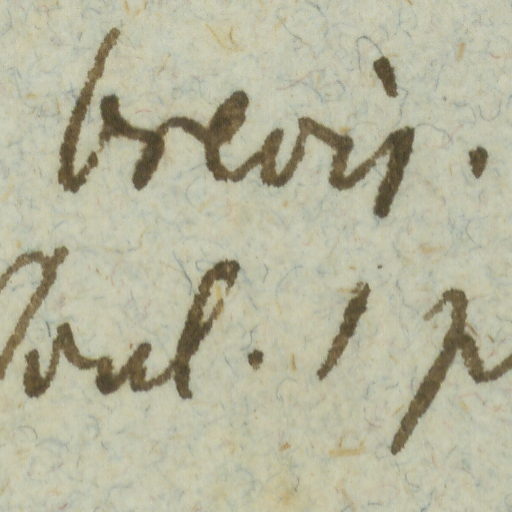 brevis.
Poul. 1 p